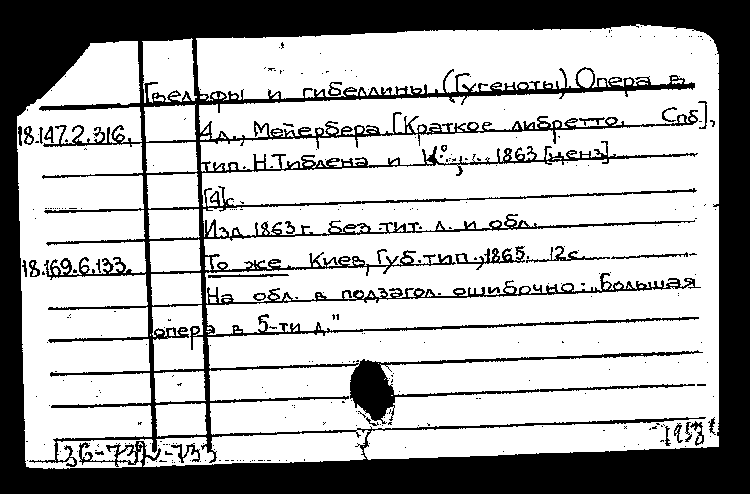 Гвельфы и гибеллины. (Гугеноты) Опера в
18.147.2.316. 4д., Мейербера. [Краткое либретто. Спб],
тип. Н. Тиблена и К°, 1863 [ценз].
[4]с.
Изд. 1863 г. без тит. л. и обл.
18.169.6.133. То же. Киев, Губ. тип., 1865. 12с.
На обл. в подзагол. ошибочно: „Большая
опера в 5-ти д."
1958